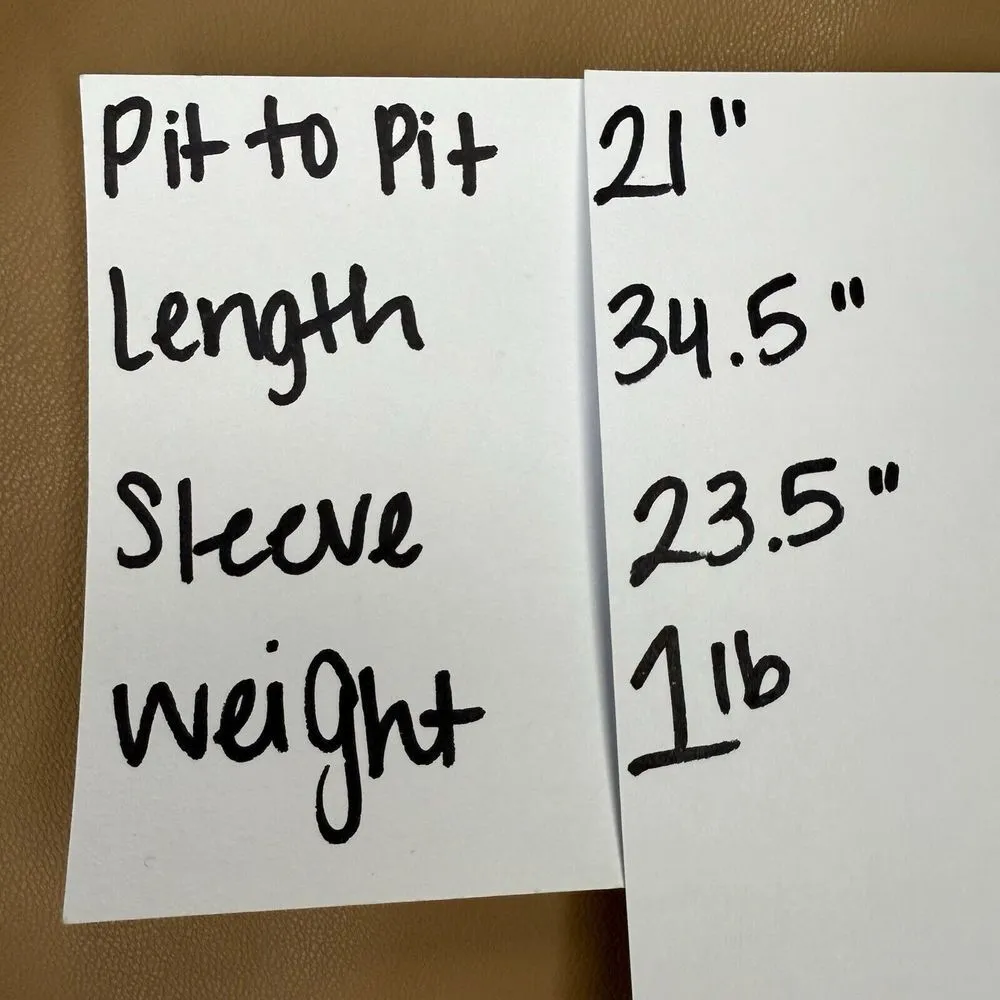 Pit to Pit 21"
Length 34.5"
Sleeve 23.5"
Weight 1 lb